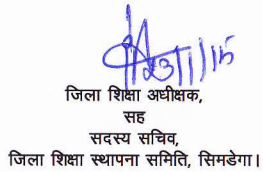 जिला शिक्षा अधीक्षक,
सह
सदस्य सचिव,
जिला शिक्षा स्थापना समिति, सिमडेगा।